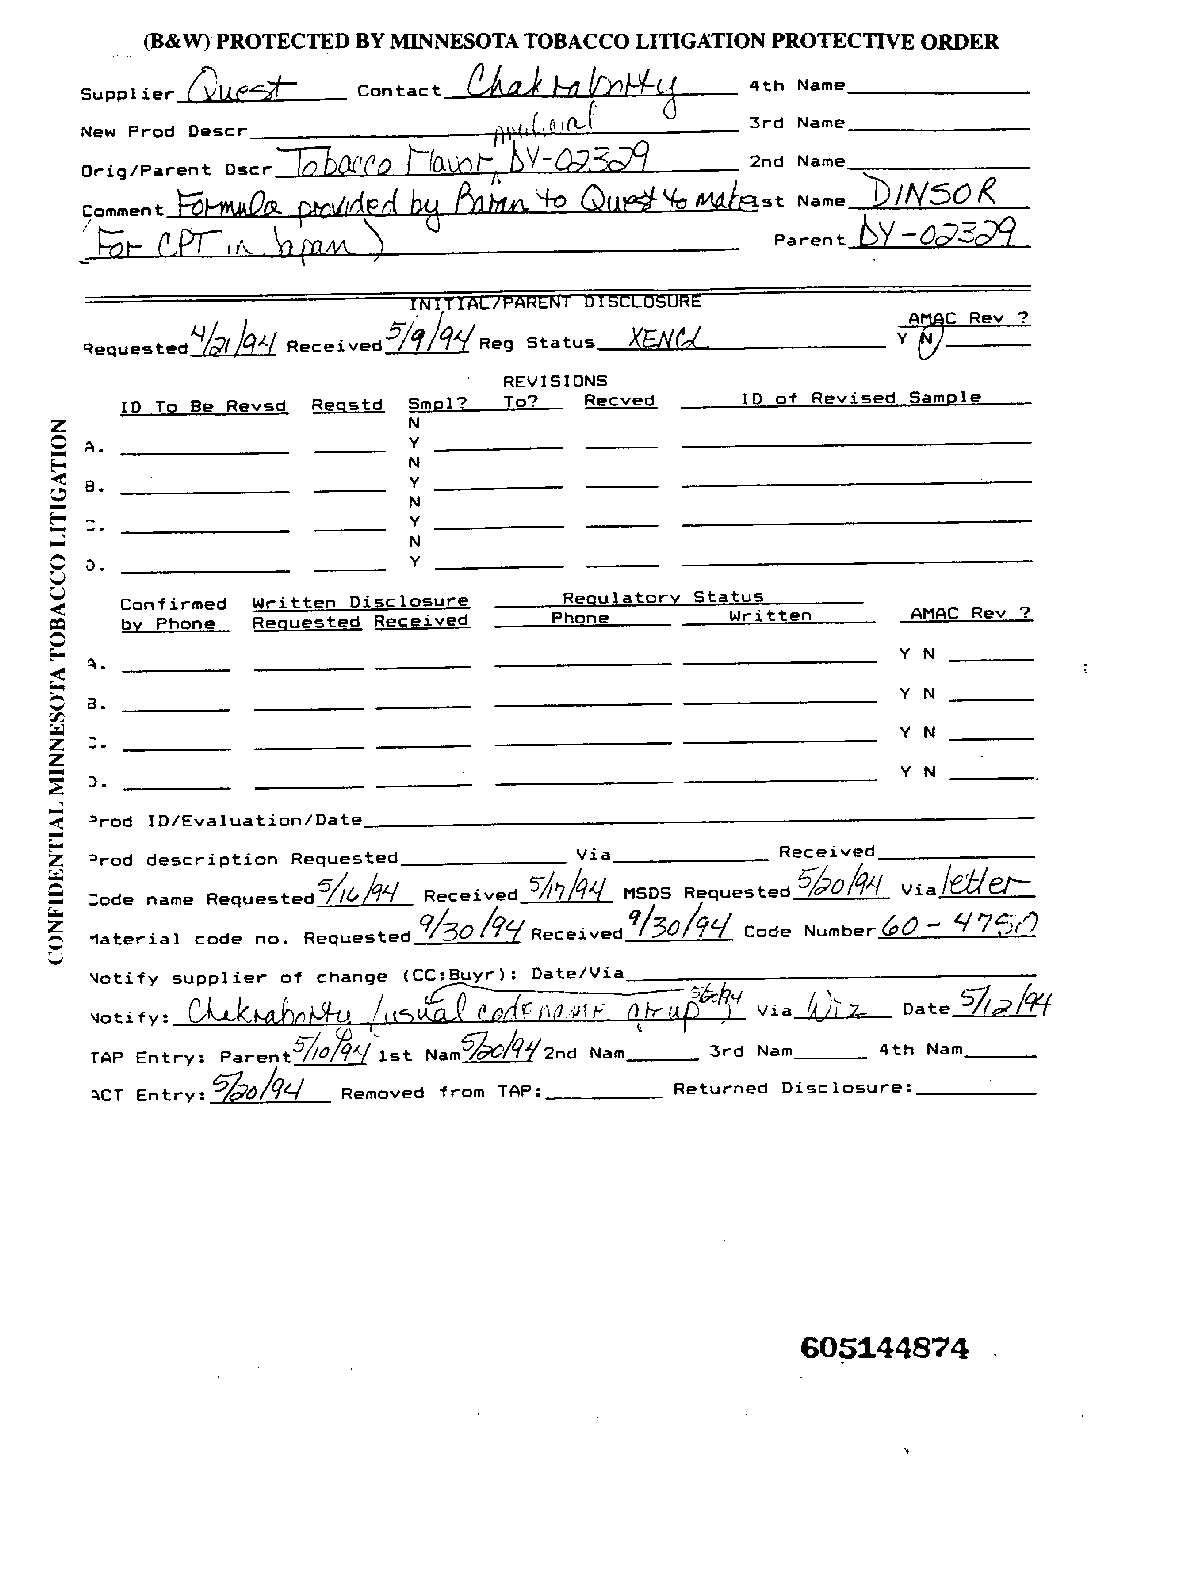 (B&W) PROTECTED BY MINNESOTA TOBACCO LITIGATION PROTECTIVE ORDER
Supplier Quest Contact Chakraborty 4th Name
New Prod Descr 3rd Name
Artificial
Orig/Parent Dscr Tobacco Flavor, DY-02329 2nd Name
Comment Formula provided by to Quest to make st Name DINSOR
For CPT in Japan) Parent DY-02329
INITIAL/PARENT DISCLOSURE
AMAC Rev ?
Requested 4/21/94 Received 5/9/94 Reg Status XENCL Y N
REVISIONS
ID To Be Revsd Reqstd Smpl? To? Recved ID of Revised Sample
N
A. Y
N
B. Y
N
C. Y
N
D. Y
Confirmed Written Disclosure Regulatory Status
by Phone Requested Received Phone Written AMAC Rev ?
A. Y N
B. Y N
C. Y N
D. Y N
Prod ID/Evaluation/Date
Prod description Requested Via Received
Code name Requested 5/16/94 Received 5/17/94 MSDS Requested 5/20/94 Via letter
Material code no. Requested 9/30/94 Received 9/30/94 Code Number 60-4750
Notify supplier of change (CC:Buyr): Date/Via
Notify: Chakraborty /usual code name group Via Wiz Date 5/12/94
TAP Entry: Parent 5/10/94 1st Nam 5/20/94 2nd Nam 3rd Nam 4th Nam
ACT Entry: 5/20/94 Removed from TAP: Returned Disclosure:
605144874
CONFIDENTIAL MINNESOTA TOBACCO LITIGATION